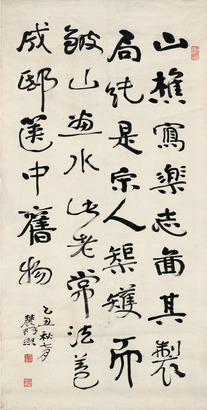 山樵寫樂志圖其製
局純是宋人榘矱而
皴山畫水此老常法蓋
成邸箧中舊物
乙丑秋七月